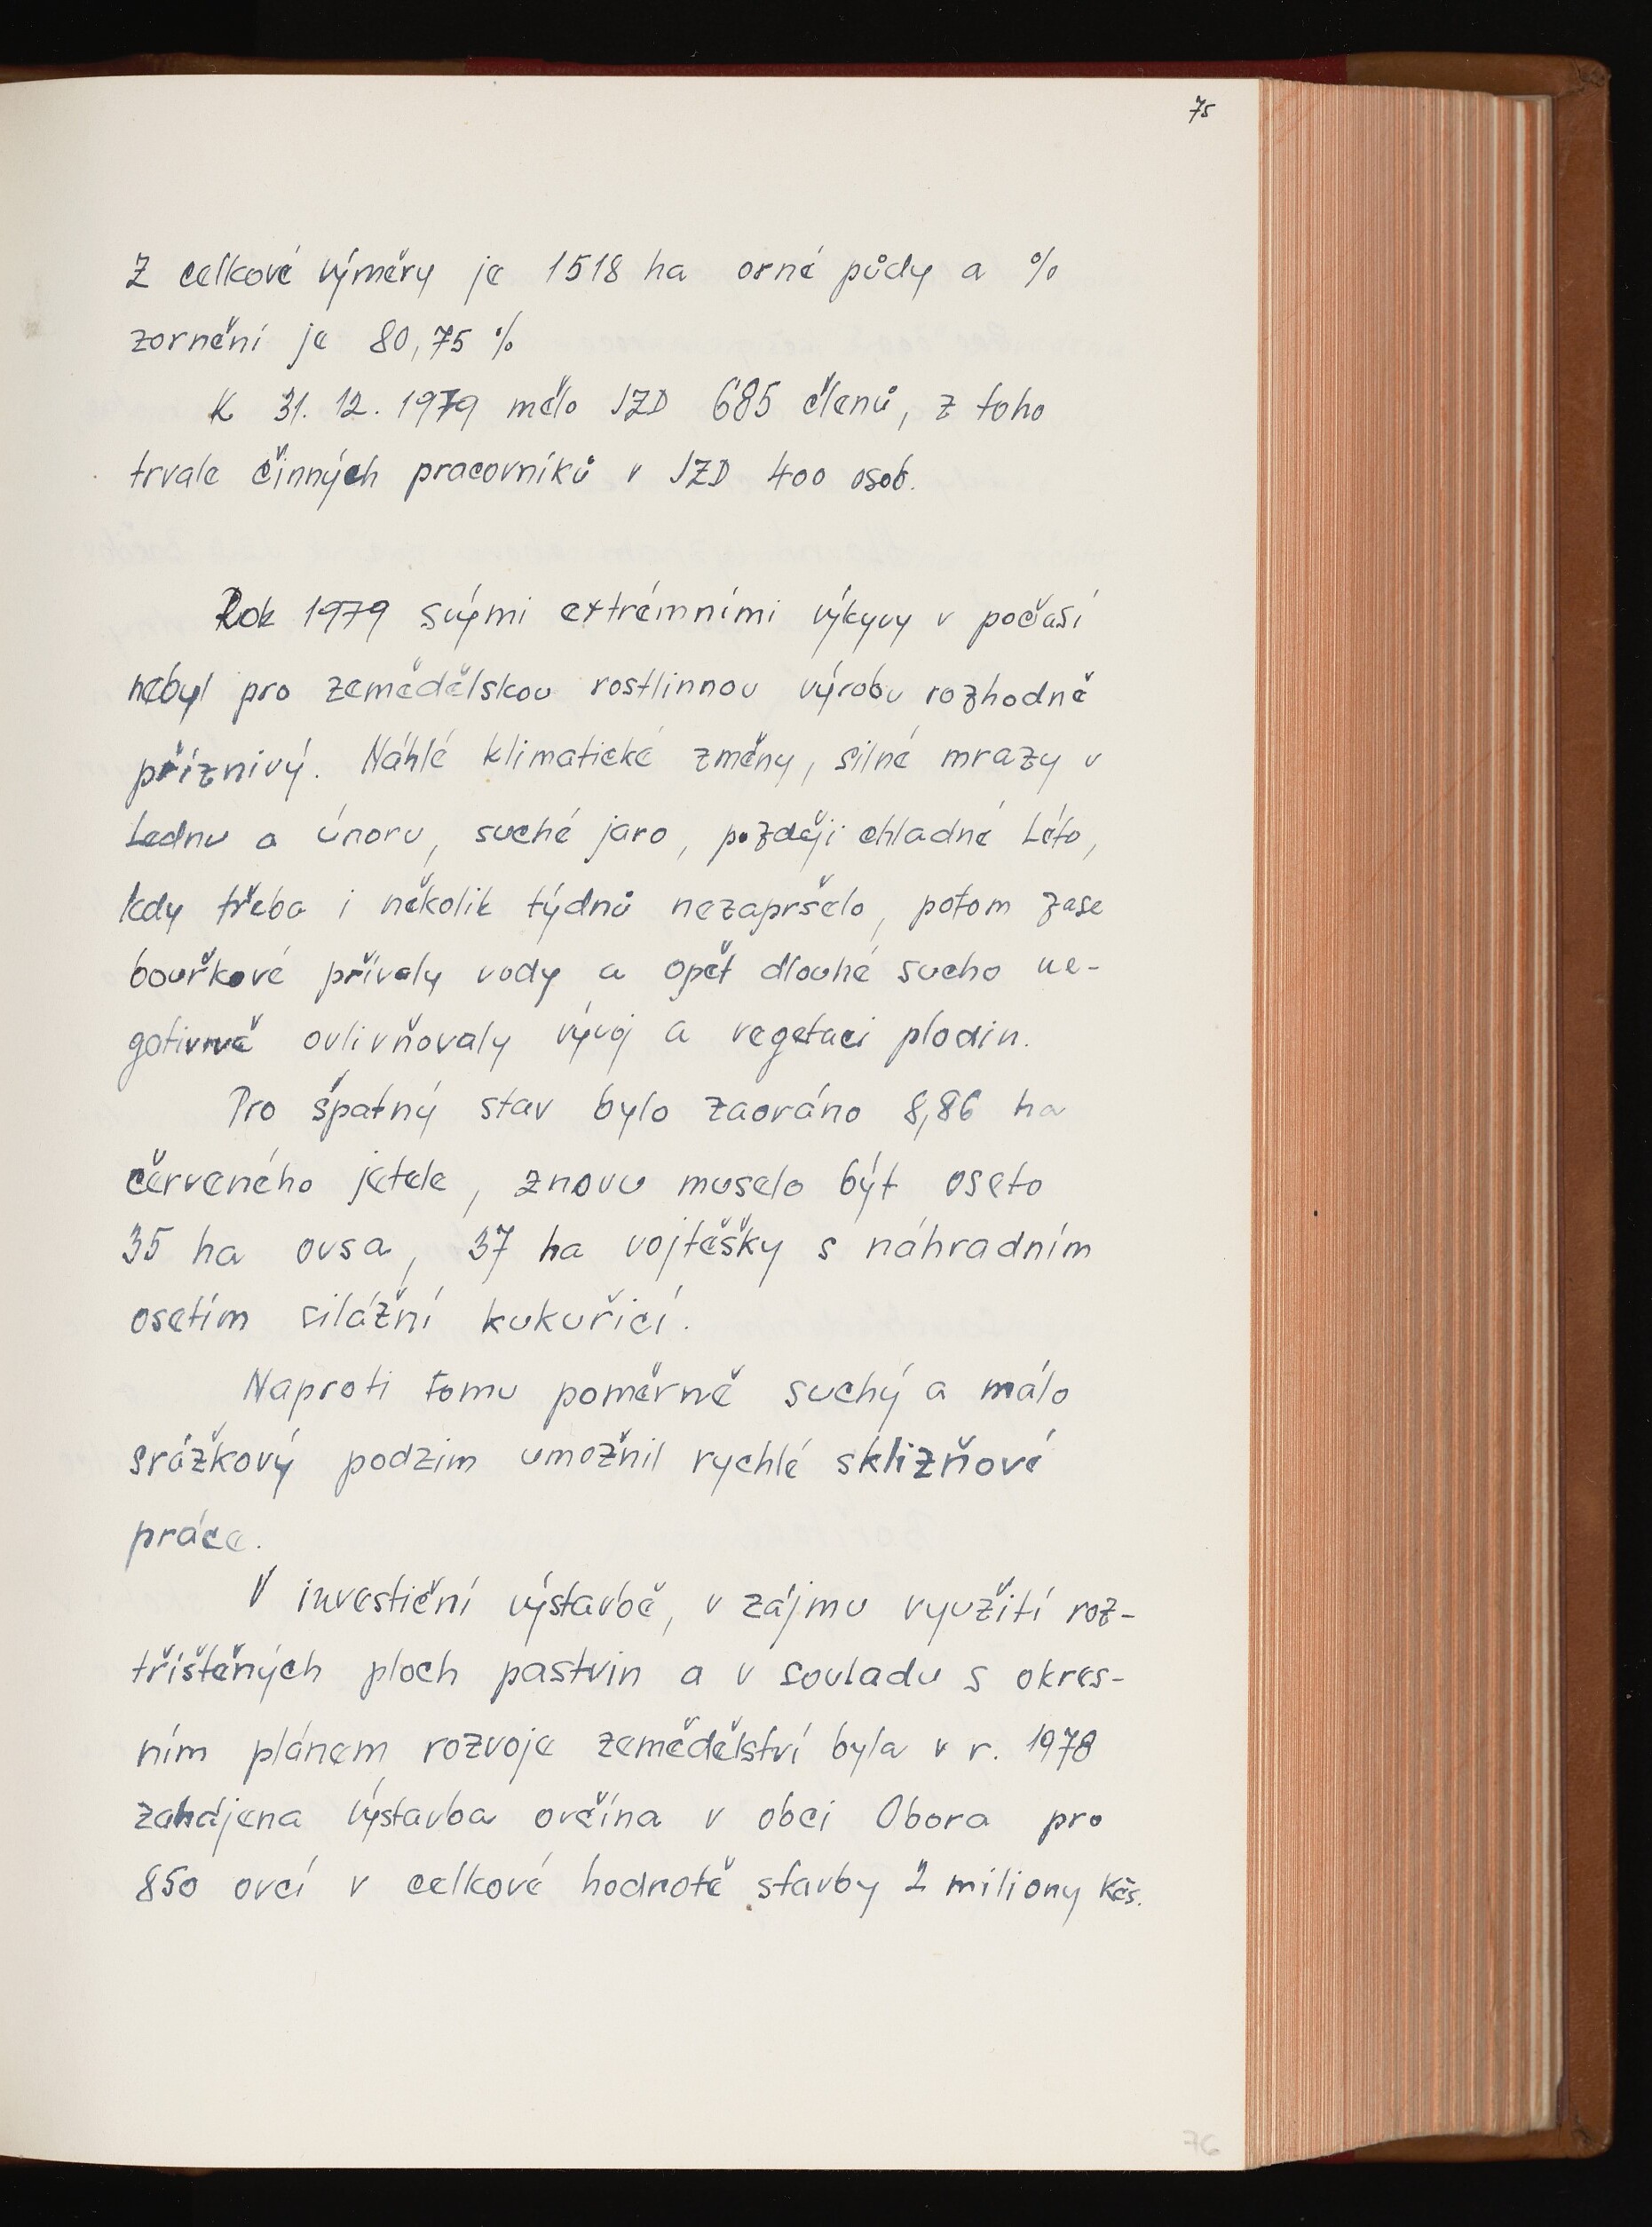 75
Z celkové výměry je 1518 ha orné půdy a %
zornění je 80,75 %
K 31. 12. 1979 mělo JZD 685 členů, z toho
trvale činných pracovníků v JZD 400 osob.
Rok 1979 svými extrémními výkyvy v počasí
nebyl pro zemědělskou rostlinnou výrobu rozhodně
příznivý. Náhlé klimatické změny, silné mrazy v
Lednu a únoru, suché jaro, později chladné Léto,
kdy třeba i několik týdnů nezapršelo, potom zase
bouřkové přívaly vody a opět dlouhé sucho ne-
gativně ovlivňovaly vývoj a vegetaci plodin.
Pro špatný stav bylo zaoráno 8,86 ha
červeného jetele, znovu muselo být oseto
35 ha ovsa, 37 ha vojtěšky s náhradním
osetím silážní kukuřicí.
Naproti tomu poměrně suchý a málo
srážkový podzim umožnil rychlé sklizňové
práce.
V investiční výstavbě, v zájmu využití roz-
tříštěných ploch pastvin a v souladu s okres-
ním plánem rozvoje zemědělství byla v r. 1978
zahájena výstavba ovčína v obci Obora pro
850 ovcí v celkové hodnotě stavby 2 miliony Kčs.
76